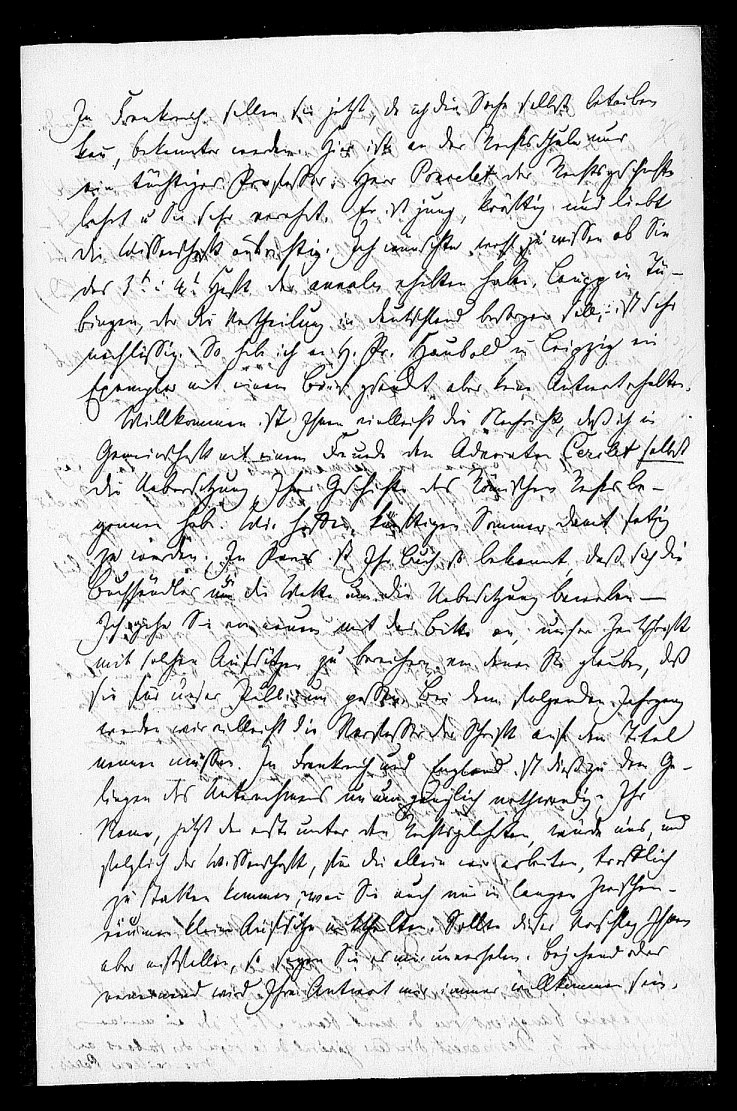 In Frankreich sollen sie jetzt, da ich die Sache selbst betreiben
kan, bekannter werden. Hier ist an der Rechtsschule nur
ein tüchtiger Professor. Herr Poncelet der Rechtsgeschichte
lehrt u Sie sehr verehrt. Er ist jung, kräftig und liebt
die Wissenschaft aufrichtig. Ich wünschte wohl zu wissen ob Sie
das 3t. u 4t. Heft der annales erhalten haben. Laupp in Tü-
bingen, der die Vertheilung in Deutschland besorgen soll, ist sehr
nachlässig. So habe ich an H. Pr. Haubold in Leipzig ein
Exemplar mit einem Brief gesandt, aber keine Antwort erhalten.
Willkommen ist Ihnen vielleicht die Nachricht, daß ich in
Gemeinschaft mit einem Freunde dem Advocaten selbst
die Uebersetzung Ihrer Geschichte des Römischen Rechts be-
gonnen habe. Wir hoffen künftigen Sommer damit fertig
zu werden. In Paris ist Ihr Buch so bekannt, daß sich die
Buchhändler um die Wette um die Uebersetzung bewerben —
Ich gehe Sie von neuem mit der Bitte an, unsere Zeitschrift
mit solchen Aufsätzen zu bereichern, von denen Sie glauben, daß
sie für unser Publicum passen. Bei dem folgenden Jahrgang
werden wir vielleicht die Verfasser der Schrift auf dem Titel
nennen müssen. In Frankreich und England ist dieß zu dem Ge-
lingen des Unternehmens unumgänglich nothwendig. Ihr
Name, jetzt der erste unter den Rechtsgelehrten, würde uns, und
folglich der Wissenschaft, für die allein wir arbeiten, trefflich
zu statten kommen, wenn Sie auch nur in langen Zwischen-
räumen kleine Aufsätze mittheilten. Sollte dieser Vorschlag Ihnen
aber mißfallen, so sagen Sie es mir unverholen. Bejahend oder
verneinend wird Ihre Antwort mir immer willkommen sein.